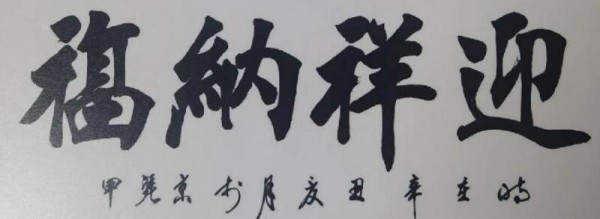 迎祥納福
時在辛丑夏月於京甲